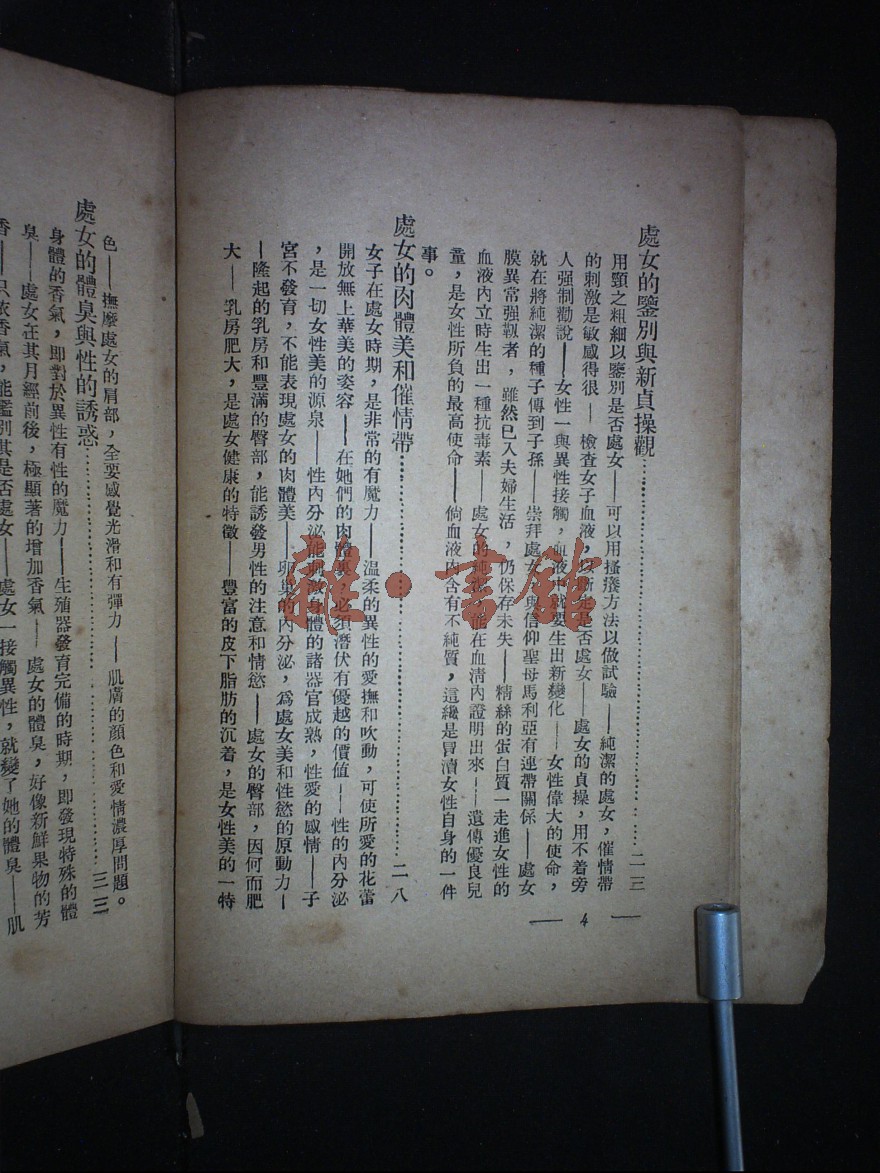 處女的鑒別與新貞操觀……………………二三
用頸之粗細以鑒別是否處女——可以用搔癢方法以做試驗——純潔的處女，催情帶
的刺激是敏感得很——檢查女子血液，以斷定是否處女——處女的貞操，用不着旁
人强制勸說——女性一與異性接觸，血液中就要生出新變化——女性偉大的使命，
就在將純潔的種子傳到子孫——崇拜處女與信仰聖母馬利亞有連帶關係——處女
膜異常强靱者，雖然已入夫婦生活，仍保存未失——精絲的蛋白質一走進女性的
血液內立時生出一種抗毒素——處女的純潔，能在血清內證明出來——遺傳優良兒
童，是女性所負的最高使命——倘血液內含有不純質，這纔是冒瀆女性自身的一件
事。
處女的肉體美和催情帶……………………二八
女子在處女時期，是非常的有魔力——溫柔的異性的愛撫和吹動，可使所愛的花蕾
開放無上華美的姿容——在她們的肉體裏，必須潛伏有優越的價值——性的內分泌
，是一切女性美的源泉——性內分泌能刺激身體的諸器官成熟，性愛的感情——子
宮不發育，不能表現處女的肉體美——卵巢的內分泌，爲處女美和性慾的原動力—
—隆起的乳房和豐滿的臀部，能誘發男性的注意和情慾——處女的臀部，因何而肥
大——乳房肥大，是處女健康的特徵——豐富的皮下脂肪的沉着，是女性美的一特
— 4 —
色——撫摩處女的肩部，全要感覺光滑和有彈力——肌膚的顏色和愛情濃厚問題。
處女的體臭與性的誘惑……………………三三
身體的香氣，即對於異性有性的魔力——生殖器發育完備的時期，即發現特殊的體
臭——處女在其月經前後，極顯著的增加香氣——處女的體臭，好像新鮮果物的芳
香——只依香氣，能鑑別其是否處女——處女一接觸異性，就變了她的體臭——肌
雜·書館